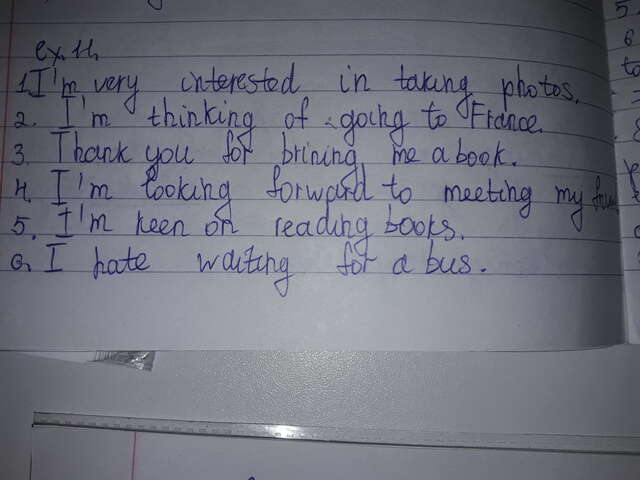 ex. 11.
1. I'm very interested in taking photos.
2. I'm thinking of going to France.
3. Thank you for brining me a book.
4. I'm looking forward to meeting my
5. I'm keen on reading books.
6. I hate waiting for a bus.